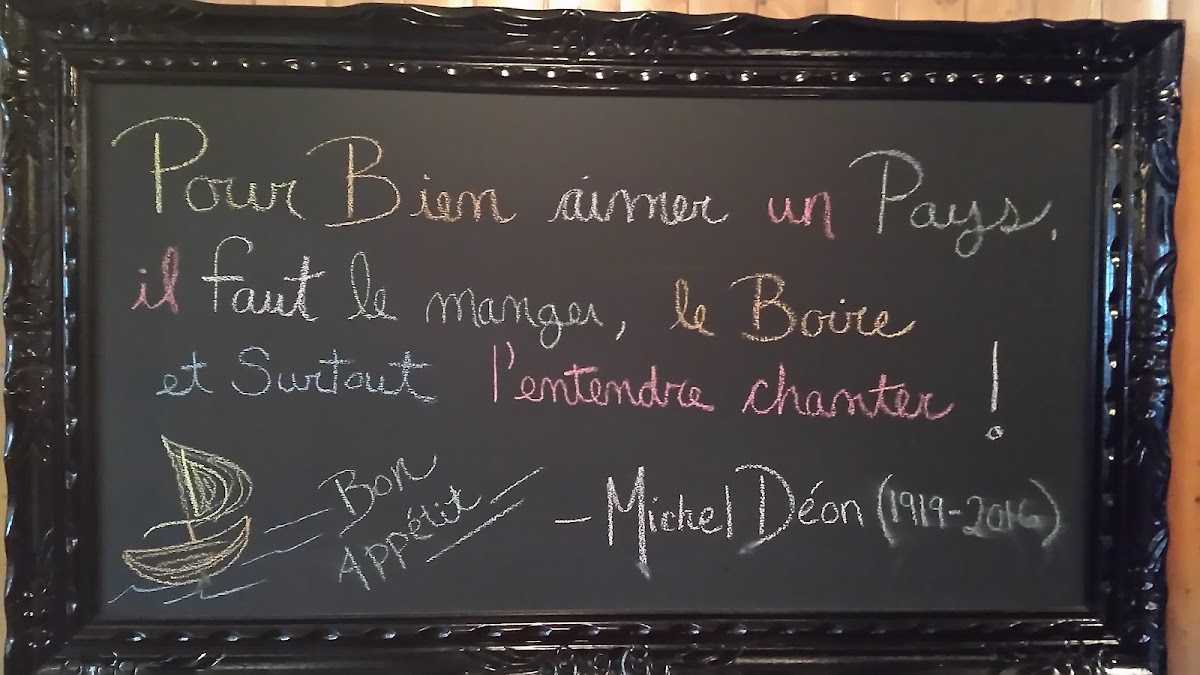 Pour Bien aimer un Pays,
il faut le manger, le Boire
et Surtout l'entendre chanter !
Bon
Appétit
– Michel Déon (1919-2016)